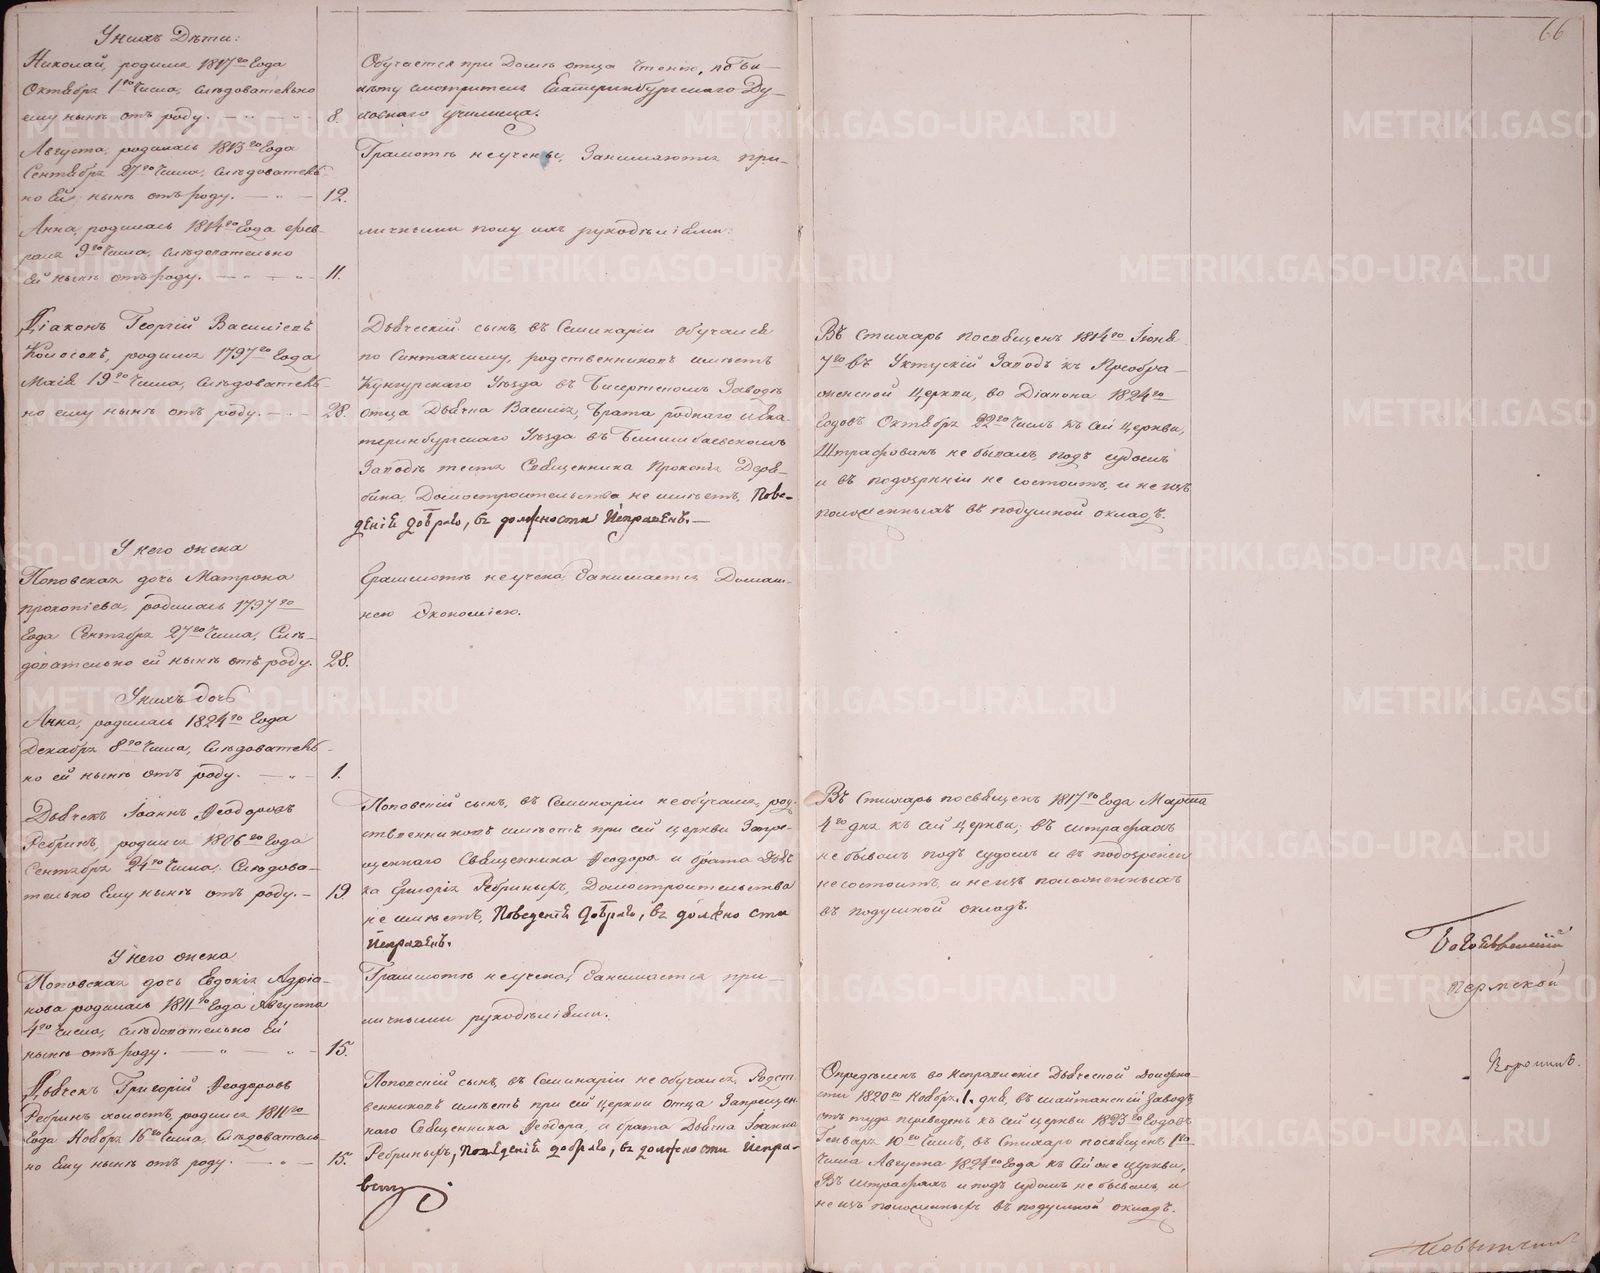 У нихъ Дѣти:
Николай, родился 1817го Года
Октября 1го Числа, слѣдовательно
ему нынѣ отъ роду. 8.
Августа, родилась 1813го Года
Сентября 27го Числа, слѣдователь-
но Ей нынѣ отъ роду. 12.
Анна, родилась 1814го Года Фев-
раля 9го Числа, слѣдовательно
Ей нынѣ отъ роду. 11.
Діаконъ Георгій Василіевъ
родился 1797го Года
Маія 19го Числа, Слѣдователь-
но ему нынѣ отъ роду. 28.
У него жена
Поповская дочь Матрона
Прокопіева, родилась 1797го
Года Сентября 27го Числа, Слѣ-
довательно ей нынѣ отъ роду. 28.
У нихъ дочь
Анна, родилась 1824го Года
Декабря 8го Числа, Слѣдователь-
но ей нынѣ отъ роду. 1.
Дьячекъ Іоаннъ Ѳеодоровъ
Ребринъ, родился 1806го Года
Сентября 24го Числа, Слѣдова-
тельно Ему нынѣ отъ роду. 19.
У него жена
Поповская дочь Евдокія Адріа-
нова родилась 1811го Года Августа
4го Числа, слѣдовательно Ей
нынѣ отъ роду. 15.
Дьячекъ Григорій Ѳеодоровъ
Ребринъ холостъ, родился 1811го
Года Ноября 16го Числа, Слѣдователь-
но Ему нынѣ отъ роду. 15.
Обучается при Домѣ отца Чтенію, по Би-
лету смотрителя Екатеринбургскаго Ду-
ховнаго училища.
Грамотѣ неучены, Занимаются при-
личными полу ихъ рукодѣліями.
Дьяческій сынъ, въ Семинаріи обучался
по Синтаксиму, родственниковъ имѣетъ
Кунгурскаго Уѣзда въ Бисертскомъ Заводѣ
отца Дьячка Василія, брата роднаго и Ека-
теринбургскаго Уѣзда въ Билимбаевскомъ
Заводѣ тестя Священника Прокопія Деря-
бина, Домостроительства не имѣетъ, Пове-
денія добраго, въ должности Исправенъ.
Грамматѣ неучена, Занимается Домаш-
нею Экономіею.
Поповскій сынъ, въ Семинаріи необучался, род-
ственниковъ имѣетъ при сей церкви Запре-
щеннаго Священника Ѳеодора и брата Дьяч-
ка Григорія Ребриныхъ, Домостроительства
не имѣетъ, Поведенія Добраго, въ должности
Исправенъ.
Грамматѣ неучена, Занимается при-
личными рукодѣліями.
Поповскій сынъ, въ Семинаріи не обучался, Родст-
венниковъ имѣетъ при сей церкви отца Запрещен-
наго Священника Ѳеодора, и брата Дьячка Іоанна
Ребриныхъ, Поведенія добраго, въ должности Испра-
венъ
66
Въ Стихарь посвященъ 1814го Іюня
7го въ Уктускій Заводъ къ Преобра-
женской Церкви, во Діакона 1824го
Годовъ Октября 22го Числъ къ сей церкви,
Штрафованъ не бывалъ, подъ судомъ
и въ подозрѣніи не состоитъ, и неизъ
положенныхъ въ подушной окладъ.
Въ Стихарь посвященъ 1817го Года Марта
4го дня къ сей церкви, въ штрафахъ
небывалъ подъ судомъ и въ подозрѣніи
несостоитъ, и неизъ положенныхъ
въ подушной окладъ.
Опредѣленъ во исправленіе Дьяческой Должно-
сти 1820го Ноября 1. дня, въ Шайтанскій Заводъ
оттуда переведенъ къ сей церкви 1823го Годовъ
Генваря 10го Числъ, въ Стихарь посвященъ 1го
Числа Августа 1824го Года къ Сей же церкви,
Въ Штрафахъ и подъ судомъ не бывалъ, и
неизъ положенныхъ въ подушной окладъ.
Пермской
METRIKI.GASO-URAL.RU